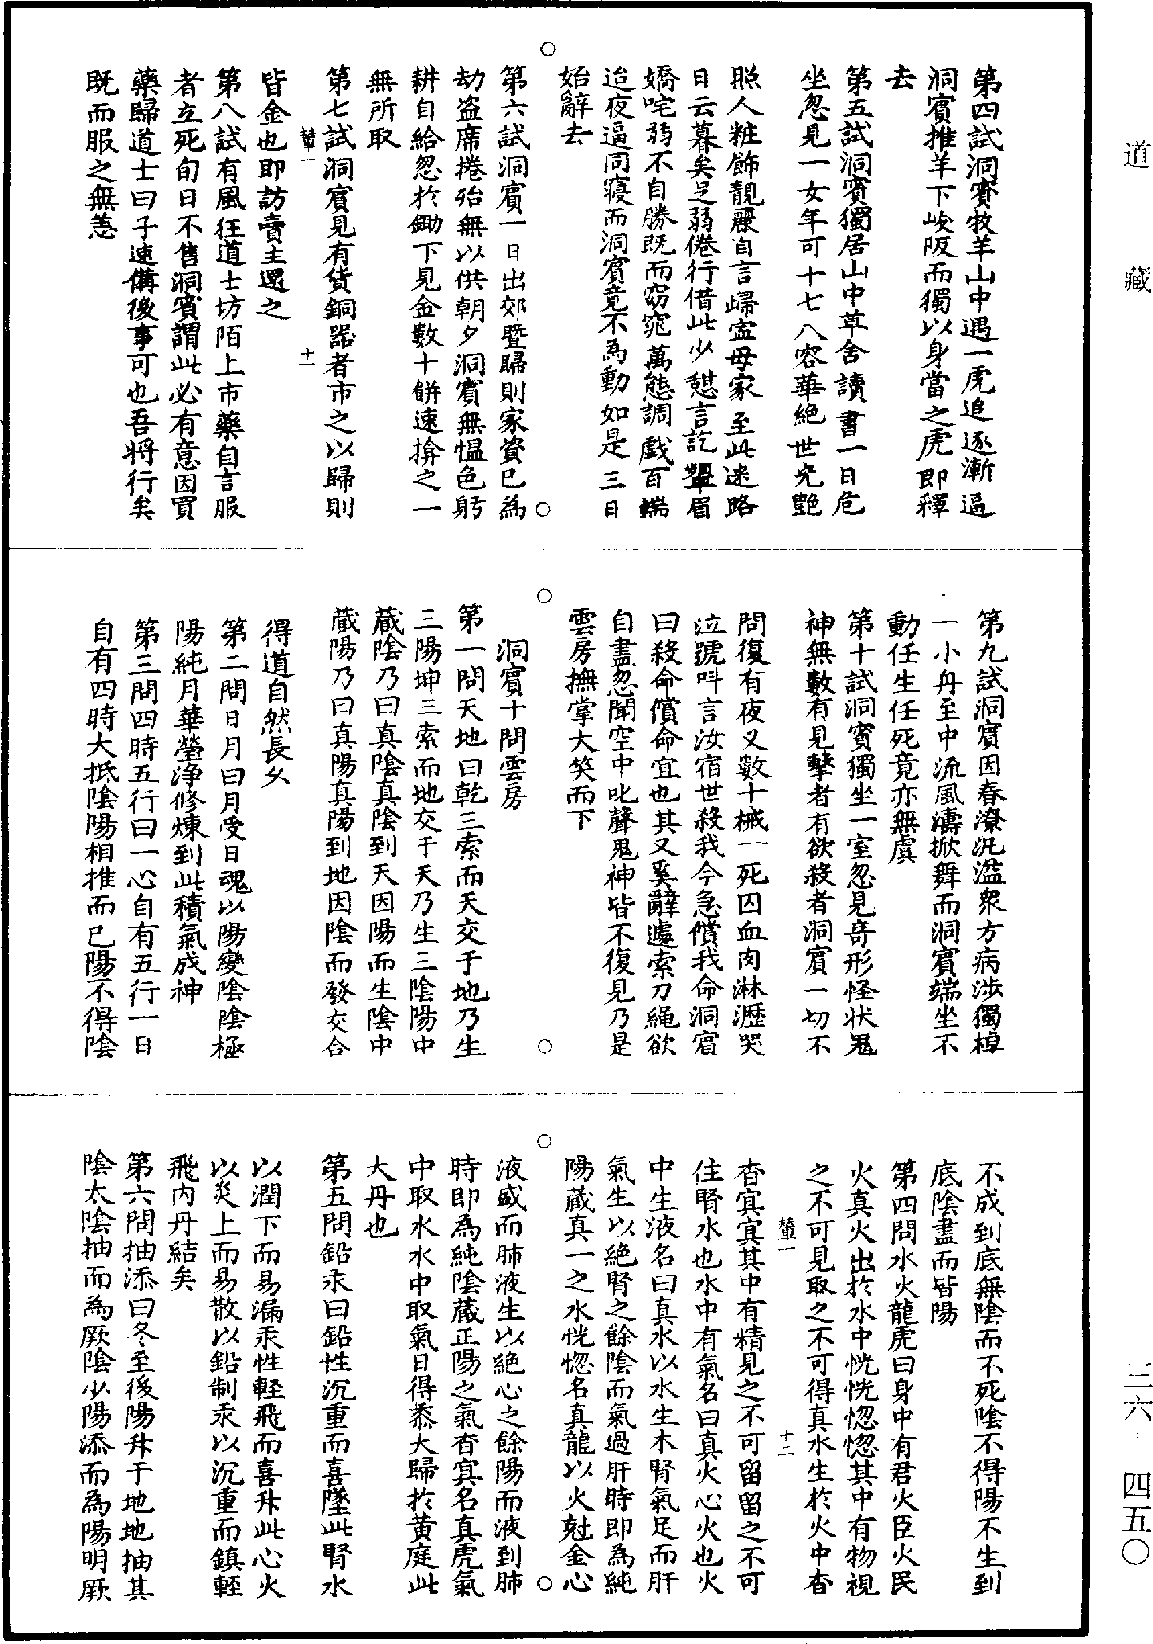 道藏 三六 四五〇
第四試洞賓牧羊山中遇一虎追逐漸逼
洞賓推羊下峻阪而獨以身當之虎即釋
去
第五試洞賓獨居山中草舍讀書一日危
坐忽見一女年可十七八容華絕世光艷
照人粧飾靚麗自言歸寧母家至此迷路
日云暮矣足弱倦行借此少憩言訖顰眉
嬌咤弱不自勝既而窈窕萬態調戲百端
迨夜逼同寢而洞賓竟不為動如是三日
始辭去
第六試洞賓一日出郊暨歸則家資已為
劫盜席捲殆無以供朝夕洞賓無慍色躬
耕自給忽於鋤下見金數十餅速揜之一
無所取
第七試洞賓見有貨銅器者市之以歸則
十一
皆金也即訪賣主還之
第八試有風狂道士坊陌上市藥自言服
者立死旬日不售洞賓謂此必有意因買
藥歸道士曰子速備後事可也吾將行矣
既而服之無恙
第九試洞賓因春潦汎溢眾方病涉獨棹
一小舟至中流風濤掀舞而洞賓端坐不
動任生任死竟亦無虞
第十試洞賓獨坐一室忽見奇形怪狀鬼
神無數有見擊者有欲殺者洞賓一切不
問復有夜叉數十械一死囚血肉淋瀝哭
泣號呌言汝宿世殺我今急償我命洞賓
曰殺命償命宜也其又奚辭遽索刀繩欲
自盡忽聞空中叱聲鬼神皆不復見乃是
雲房撫掌大笑而下
洞賓十問雲房
第一問天地曰乾三索而天交于地乃生
三陽坤三索而地交于天乃生三陰陽中
藏陰乃曰真陰真陰到天因陽而生陰中
藏陽乃曰真陽真陽到地因陰而發交合
得道自然長久
第二問日月曰月受日魂以陽變陰陰極
陽純月華瑩淨修煉到此積氣成神
第三問四時五行曰一心自有五行一日
自有四時大抵陰陽相推而已陽不得陰
不成到底無陰而不死陰不得陽不生到
底陰盡而皆陽
第四問水火龍虎曰身中有君火臣火民
火真火出於水中恍恍惚惚其中有物視
之不可見取之不可得真水生於火中杳
十二
杳冥冥其中有精見之不可留留之不可
住腎水也水中有氣名曰真火心火也火
中生液名曰真水以水生木腎氣足而肝
氣生以絕腎之餘陰而氣過肝時即為純
陽藏真一之水恍惚名真龍以火尅金心
液盛而肺液生以絕心之餘陽而液到肺
時即為純陰藏正陽之氣杳冥名真虎氣
中取水水中取氣日得黍大歸於黃庭此
大丹也
第五問鉛汞曰鉛性沉重而喜墜此腎水
以潤下而易漏汞性輕飛而喜升此心火
以炎上而易散以鉛制汞以沉重而鎮輕
飛內丹結矣
第六問抽添曰冬至後陽升于地地抽其
陰太陰抽而為厥陰少陽添而為陽明厥